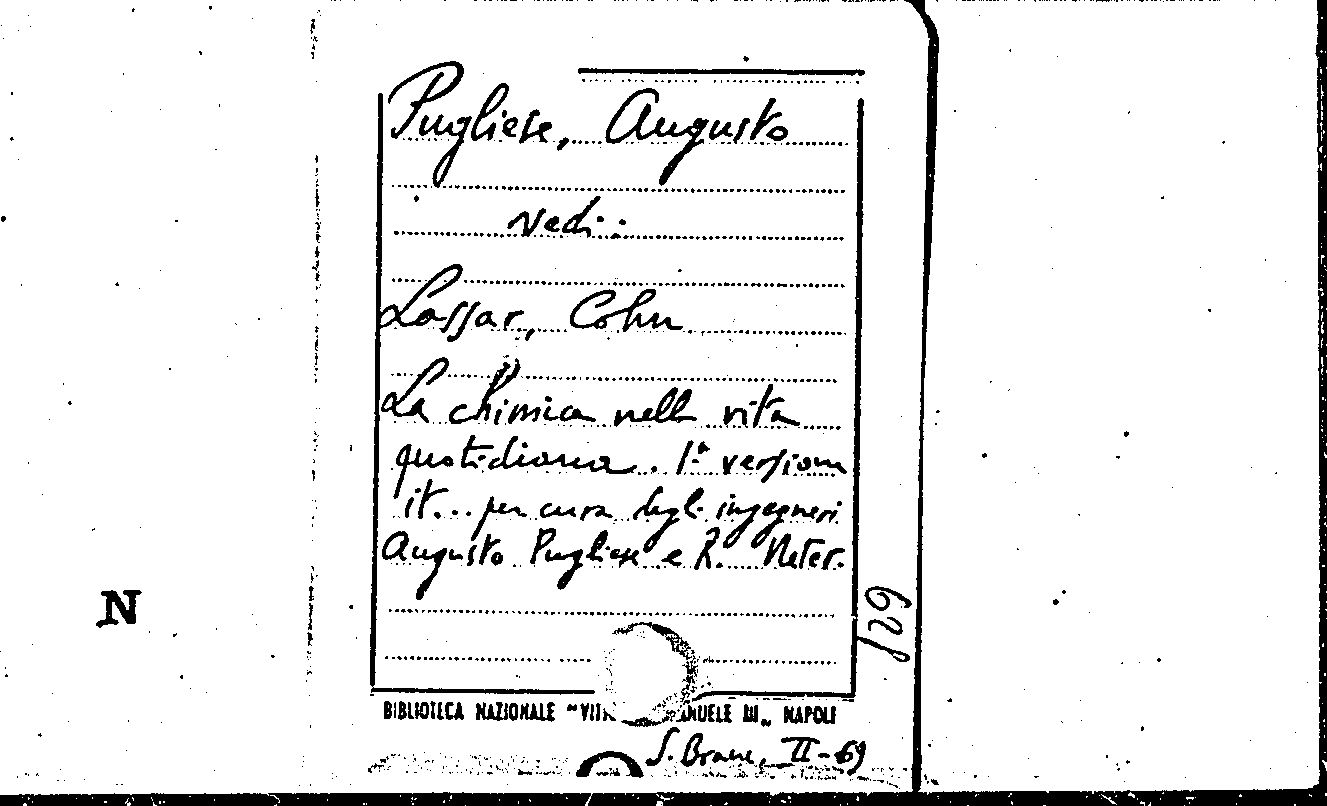 Pugliese, Augusto
vedi:
Lassar, Cohn
La chimica nella vita
quotidiana. 1ª versione
it... per cura degli ingegneri
Augusto Pugliese e R. Neter.
N
129
BIBLIOTECA NAZIONALE "VITT EMANUELE III„ NAPOLI
II-69